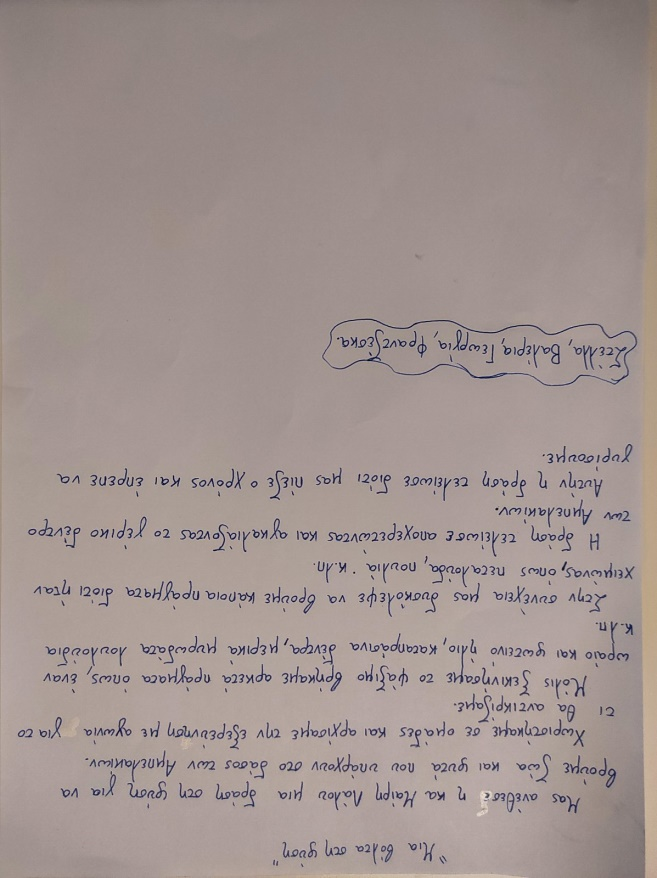 "Μια βόλτα στη φύση"
Μας ανέθεσε η κα Μαίρη Λάλου μια δράση στη φύση για να
βρούμε ζώα και φυτά που υπάρχουν στο δάσος των Αμπελακίων.
Χωριστήκαμε σε ομάδες και αρχίσαμε την εξερεύνηση με αγωνία για το
τι θα αντικρίζαμε.
Μόλις ξεκινήσαμε το ψάξιμο βρήκαμε αρκετά πράγματα όπως, έναν
ωραίο και φωτεινό ήλιο, καταπράσινα δέντρα, μερικά μυρωδάτα λουλούδια
κ.λπ.
Στην συνέχεια μας δυσκόλεψε να βρούμε κάποια πράγματα διότι ήταν
χειμώνας, όπως, πεταλούδα, πουλιά κ.λπ.
Η δράση τελείωσε αποχερετώντας και αγκαλιάζοντας το γέρικο δέντρο
των Αμπελακίων.
Αυτήν η δράση τελείωσε διότι μας πίεζε ο χρόνος και έπρεπε να
γυρίσουμε.
Στέλλα, Βαλέρια, Γεωργία, Φραντζέσκα.